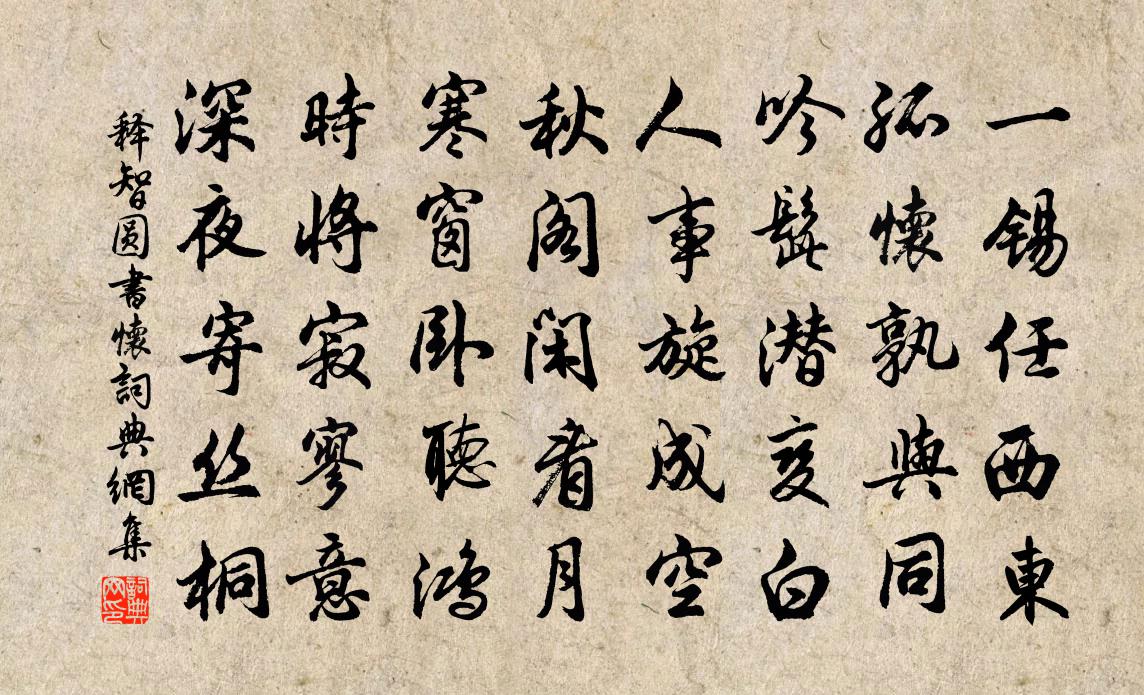 一錫任西東
孤懷孰與同
吟髭潜变白
人事旋成空
秋阁闲看月
寒窗卧聽鴻
時將寂寥意
深夜寄丝桐
释智圆書懷詞典網集
詞典
网印